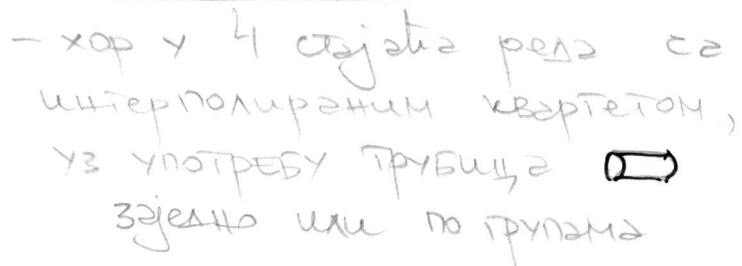 - хор у 4 стајаћа реда са
интерполираним квартетом,
уз употребу трубица
заједно или по групама